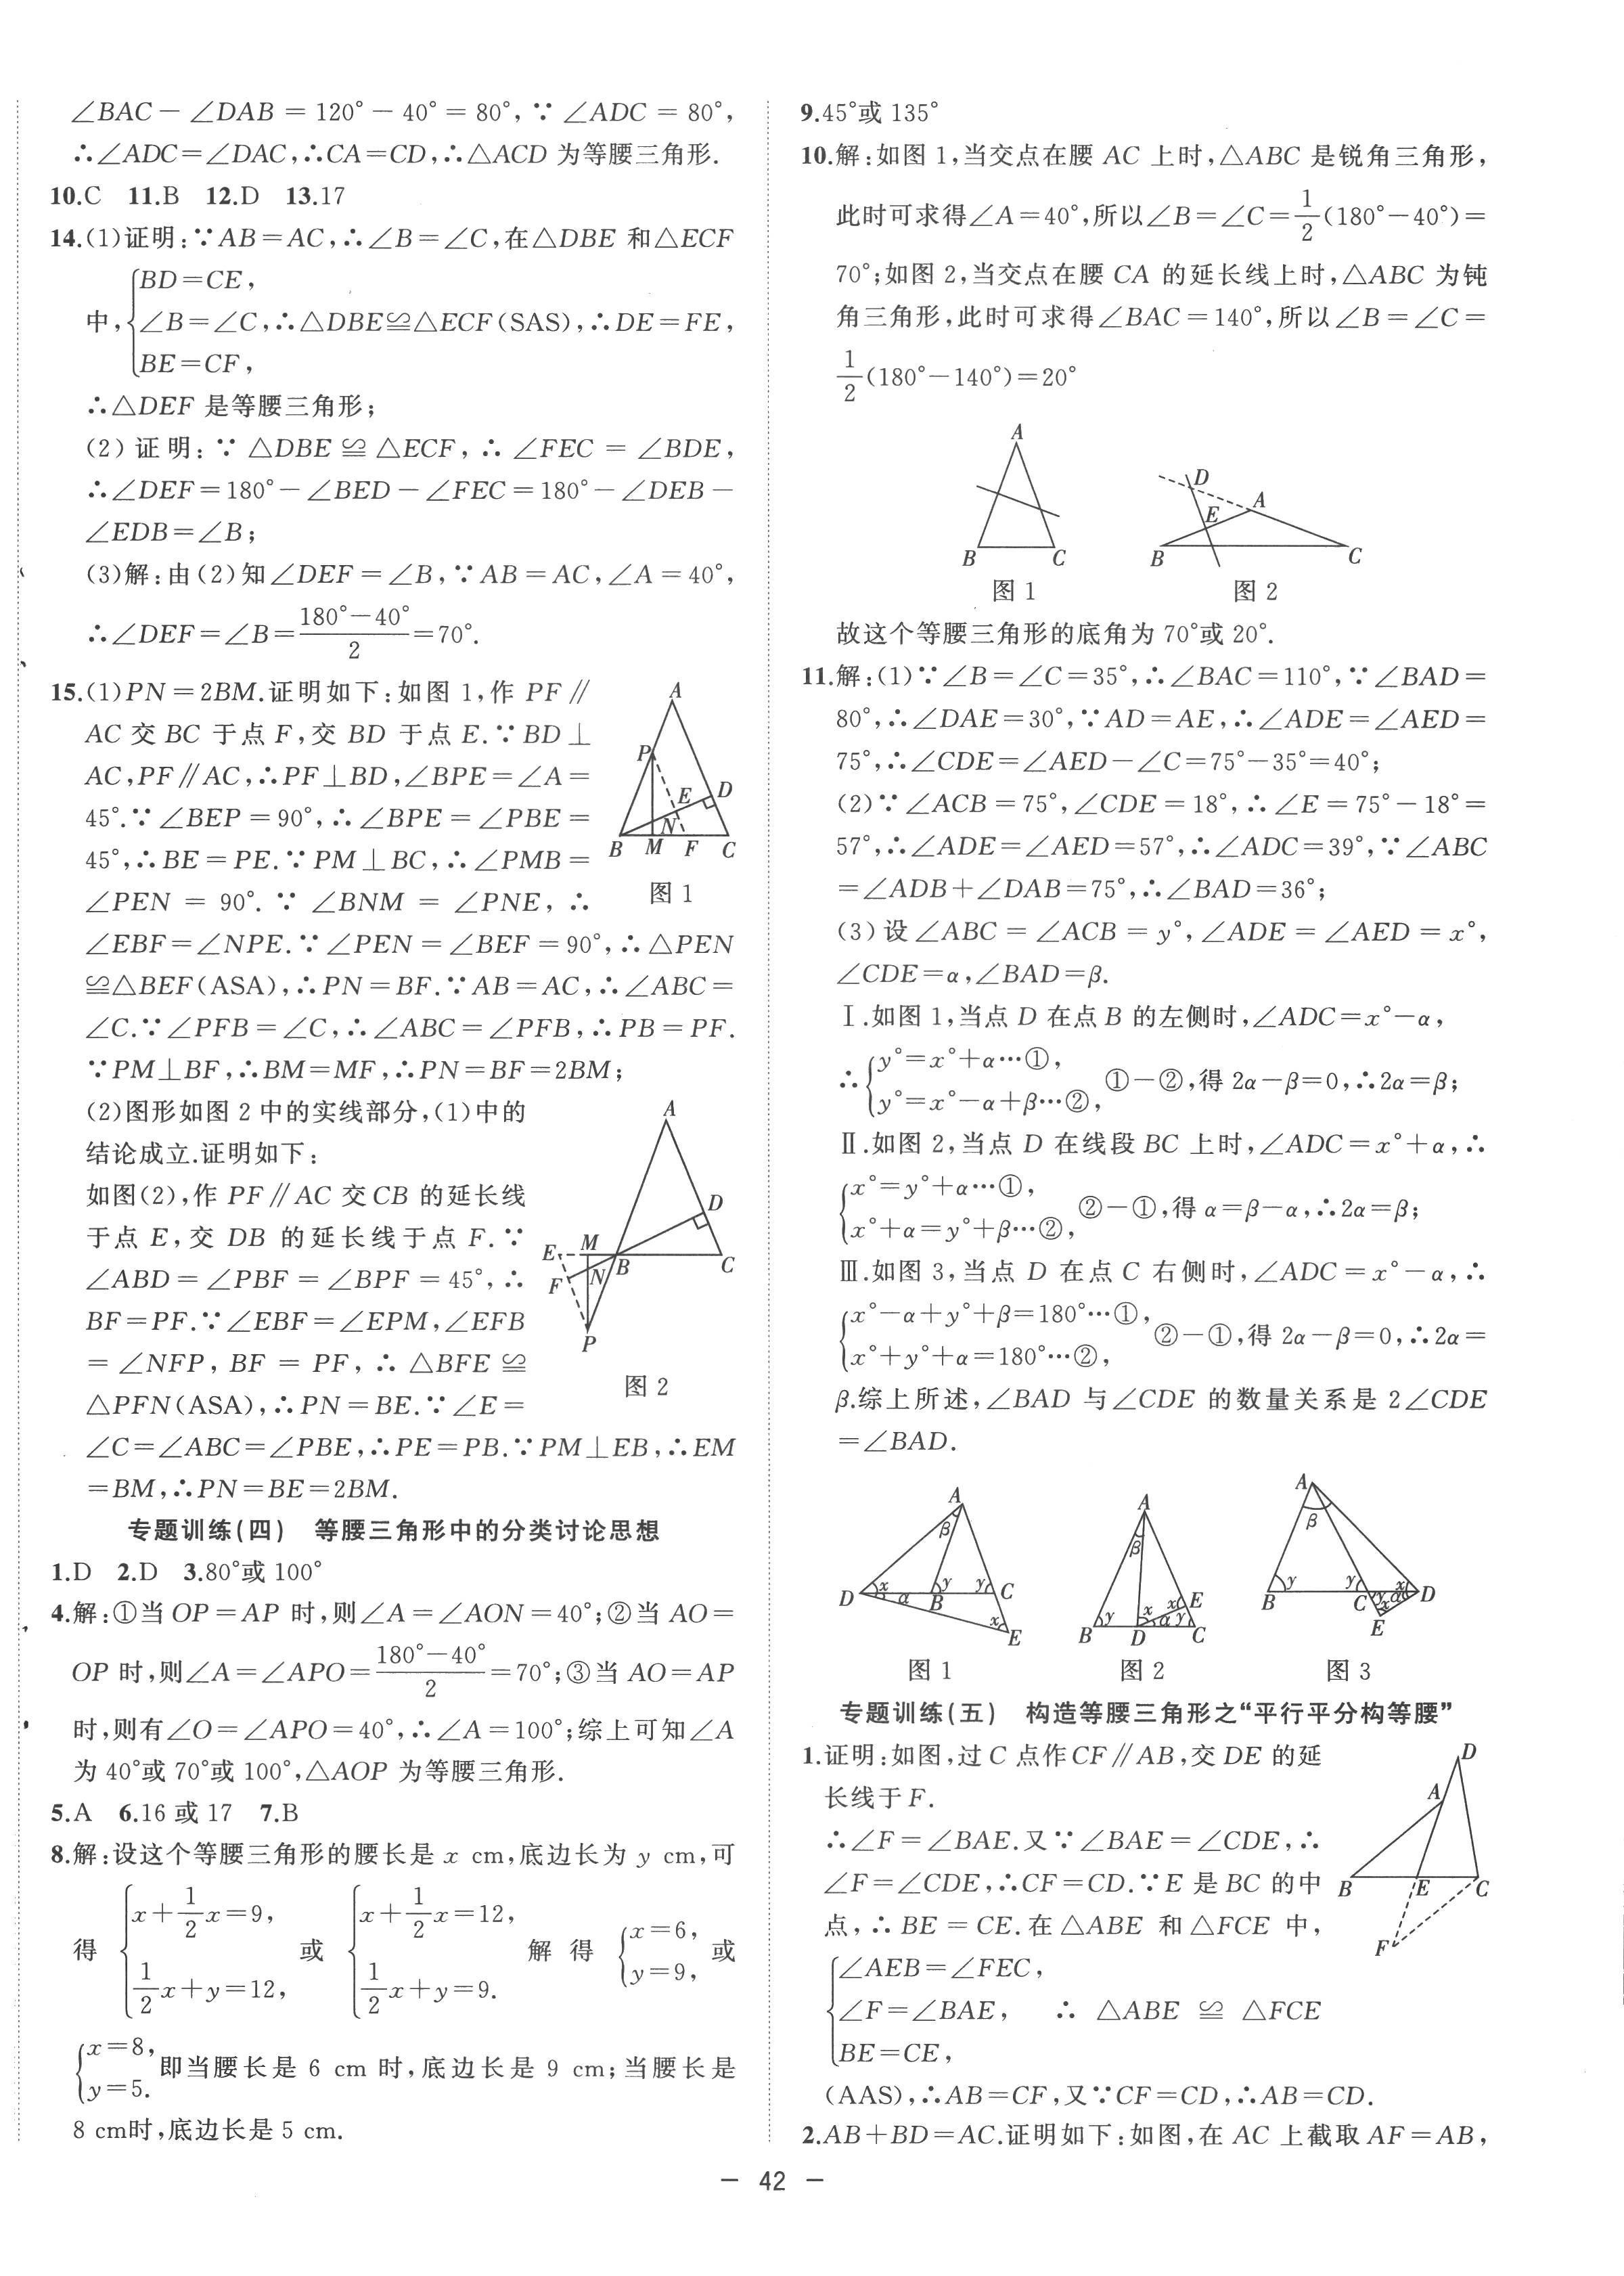 ∠BAC－∠DAB＝120°－40°＝80°,∵∠ADC＝80°,
∴∠ADC＝∠DAC,∴CA＝CD,∴△ACD 为等腰三角形.
10.C 11.B 12.D 13.17
14.(1)证明:∵AB＝AC,∴∠B＝∠C,在△DBE 和△ECF
BD＝CE,
中,{∠B＝∠C,∴△DBE≌△ECF(SAS),∴DE＝FE,
BE＝CF,
∴△DEF 是等腰三角形;
(2)证明:∵△DBE≌△ECF,∴∠FEC＝∠BDE,
∴∠DEF＝180°－∠BED－∠FEC＝180°－∠DEB－
∠EDB＝∠B;
(3)解:由(2)知∠DEF＝∠B,∵AB＝AC,∠A＝40°,
∴∠DEF＝∠B＝(180°－40°)/2＝70°.
15.(1)PN＝2BM.证明如下:如图 1,作 PF∥
AC 交 BC 于点 F,交 BD 于点 E.∵BD⊥
AC,PF∥AC,∴PF⊥BD,∠BPE＝∠A＝
45°.∵∠BEP＝90°,∴∠BPE＝∠PBE＝
45°,∴BE＝PE.∵PM⊥BC,∴∠PMB＝
∠PEN＝90°.∵∠BNM＝∠PNE,∴
∠EBF＝∠NPE.∵∠PEN＝∠BEF＝90°,∴△PEN
≌△BEF(ASA),∴PN＝BF.∵AB＝AC,∴∠ABC＝
∠C.∵∠PFB＝∠C,∴∠ABC＝∠PFB,∴PB＝PF.
∵PM⊥BF,∴BM＝MF,∴PN＝BF＝2BM;
A
P
E
D
N
B M F C
图 1
(2)图形如图 2 中的实线部分,(1)中的
结论成立.证明如下:
如图(2),作 PF∥AC 交 CB 的延长线
于点 E,交 DB 的延长线于点 F.∵
∠ABD＝∠PBF＝∠BPF＝45°,∴
BF＝PF.∵∠EBF＝∠EPM,∠EFB
＝∠NFP,BF＝PF,∴△BFE≌
△PFN(ASA),∴PN＝BE.∵∠E＝
∠C＝∠ABC＝∠PBE,∴PE＝PB.∵PM⊥EB,∴EM
＝BM,∴PN＝BE＝2BM.
A
D
E M
B C
F N
P
图 2
专题训练(四) 等腰三角形中的分类讨论思想
1.D 2.D 3.80°或 100°
4.解:①当 OP＝AP 时,则∠A＝∠AON＝40°;②当 AO＝
OP 时,则∠A＝∠APO＝(180°－40°)/2＝70°;③当 AO＝AP
时,则有∠O＝∠APO＝40°,∴∠A＝100°;综上可知∠A
为 40°或 70°或 100°,△AOP 为等腰三角形.
5.A 6.16 或 17 7.B
8.解:设这个等腰三角形的腰长是 x cm,底边长为 y cm,可
得 {x＋1/2x＝9, 1/2x＋y＝12, 或 {x＋1/2x＝12, 1/2x＋y＝9. 解得 {x＝6, y＝9, 或
{x＝8, y＝5. 即当腰长是 6 cm 时,底边长是 9 cm;当腰长是
8 cm时,底边长是 5 cm.
9.45°或 135°
10.解:如图 1,当交点在腰 AC 上时,△ABC 是锐角三角形,
此时可求得∠A＝40°,所以∠B＝∠C＝1/2(180°－40°)＝
70°;如图 2,当交点在腰 CA 的延长线上时,△ABC 为钝
角三角形,此时可求得∠BAC＝140°,所以∠B＝∠C＝
1/2(180°－140°)＝20°
A
B C
图 1
D
A
E
B C
图 2
故这个等腰三角形的底角为 70°或 20°.
11.解:(1)∵∠B＝∠C＝35°,∴∠BAC＝110°,∵∠BAD＝
80°,∴∠DAE＝30°,∵AD＝AE,∴∠ADE＝∠AED＝
75°,∴∠CDE＝∠AED－∠C＝75°－35°＝40°;
(2)∵∠ACB＝75°,∠CDE＝18°,∴∠E＝75°－18°＝
57°,∴∠ADE＝∠AED＝57°,∴∠ADC＝39°,∵∠ABC
＝∠ADB＋∠DAB＝75°,∴∠BAD＝36°;
(3)设∠ABC＝∠ACB＝y°,∠ADE＝∠AED＝x°,
∠CDE＝α,∠BAD＝β.
Ⅰ.如图 1,当点 D 在点 B 的左侧时,∠ADC＝x°－α,
∴{y°＝x°＋α…①, y°＝x°－α＋β…②, ①－②,得 2α－β＝0,∴2α＝β;
Ⅱ.如图 2,当点 D 在线段 BC 上时,∠ADC＝x°＋α,∴
{x°＝y°＋α…①, x°＋α＝y°＋β…②, ②－①,得 α＝β－α,∴2α＝β;
Ⅲ.如图 3,当点 D 在点 C 右侧时,∠ADC＝x°－α,∴
{x°－α＋y°＋β＝180°…①, x°＋y°＋α＝180°…②, ②－①,得 2α－β＝0,∴2α＝
β.综上所述,∠BAD 与∠CDE 的数量关系是 2∠CDE
＝∠BAD.
A
β
D x α y B y C
x E
图 1
A
β
x x E
B y D α y C
图 2
A
β
B y y C x α x D
E
图 3
专题训练(五) 构造等腰三角形之“平行平分构等腰”
1.证明:如图,过 C 点作 CF∥AB,交 DE 的延
长线于 F.
∴∠F＝∠BAE.又∵∠BAE＝∠CDE,∴
∠F＝∠CDE,∴CF＝CD.∵E 是 BC 的中
点,∴BE＝CE.在△ABE 和△FCE 中,
{∠AEB＝∠FEC,
∠F＝∠BAE, ∴△ABE≌△FCE
BE＝CE,
(AAS),∴AB＝CF,又∵CF＝CD,∴AB＝CD.
D
A
B E C
F
2.AB＋BD＝AC.证明如下:如图,在 AC 上截取 AF＝AB,
－ 42 －